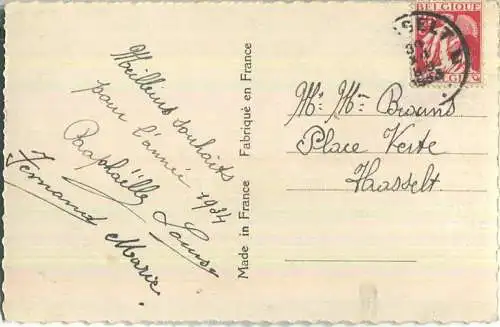 Meilleurs souhaits
pour l'année 1934
Raaphaëlle Louise
Fernand Marie.
Made in France Fabriqué en France
BELGIQUE
Mr Mme Brouns
Place Verte
Hasselt